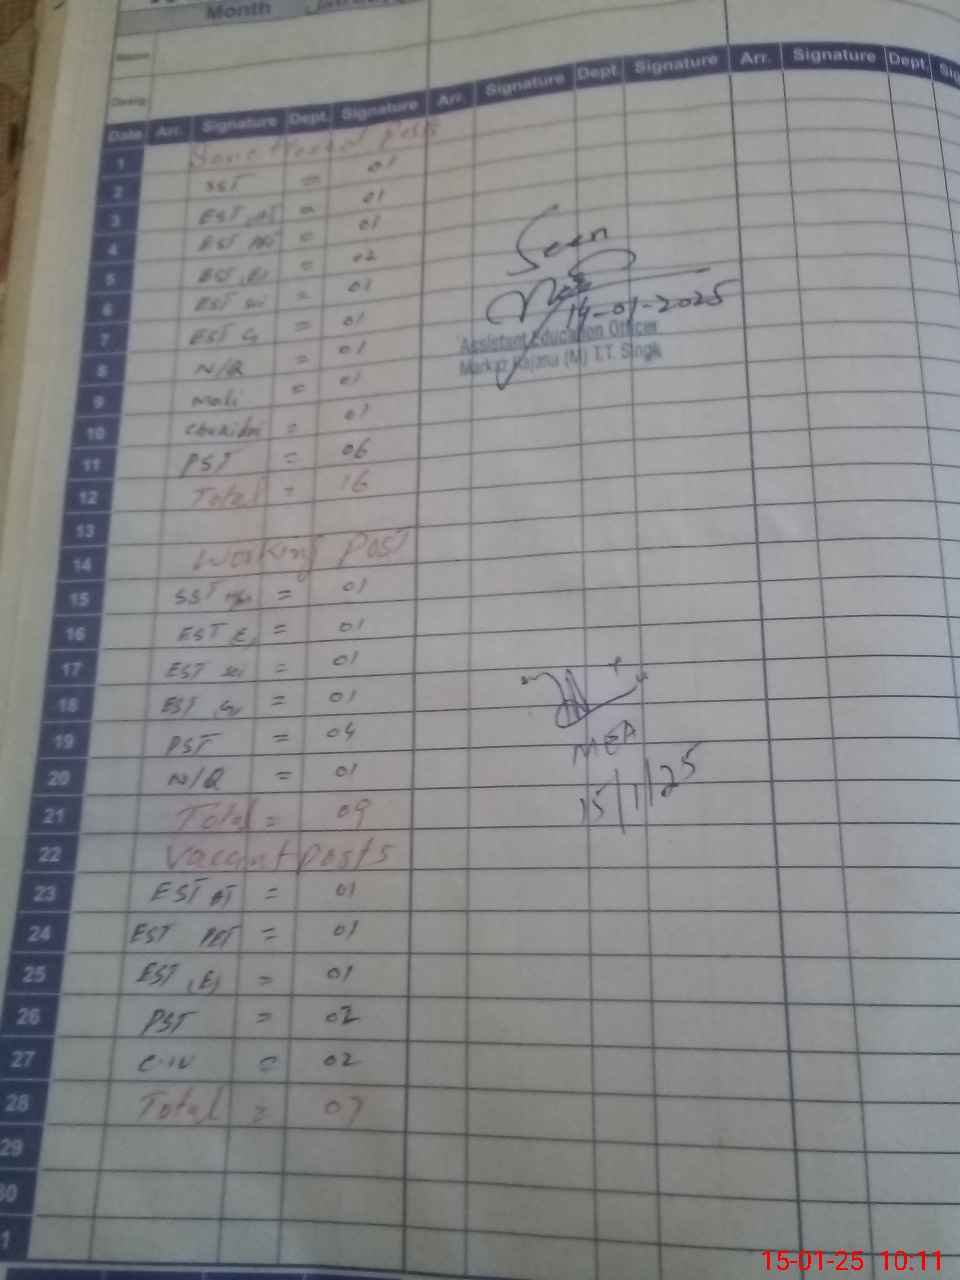 Month
Name
Desig.
Date Arr. Signature Dept. Signature Arr. Signature Dept. Signature Arr. Signature Dept.
1 Sanctioned posts
2 SST = 01
3 EST, AT = 01
4 EST PET = 01
5 EST (E) = 02
6 EST sci = 01
7 EST G = 01
8 N/Q = 01
9 mali = 01
10 = 01
11 PST = 06
12 Total = 16
13
14 Working Post
15 SST = 01
16 EST E) = 01
17 EST sci = 01
18 EST = 01
19 PST = 04
20 N/Q = 01
21 Total = 09
22 Vacant posts
23 EST AT = 01
24 EST PET = 01
25 EST (E) = 01
26 PST = 02
27 C-IV = 02
28 Total = 07
29
30
1
Seen
14-01-2025
Assistant Education Officer
Markaz Rajana (M) T.T. Singh
MEA
15/1/25
15-01-25 10:11